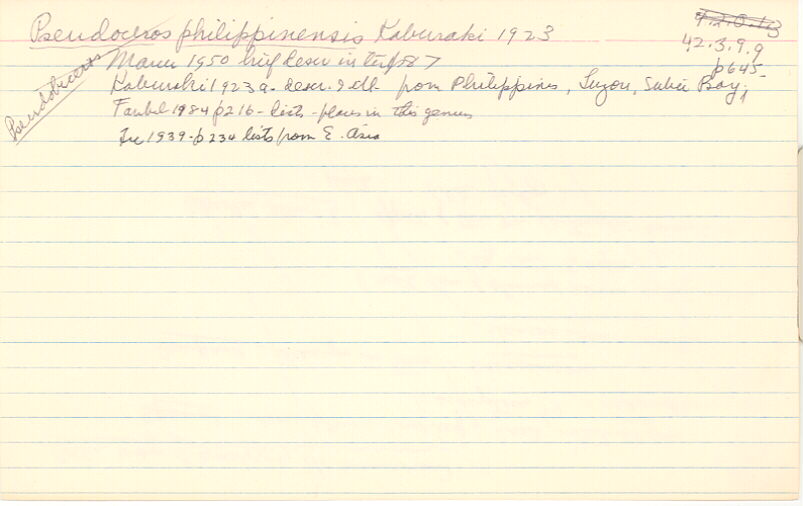 Pseudoceros philippinensis Kaburaki 1923
42.3.9.9
Pseudobiceros
Marcus 1950 brief descr in
p 87
p645-
Kaburaki 1923a- descr. & ill. from Philippines, Luzon, Subic Bay;
Faubel 1984 p216- lists - places in this genus
1939- p 234 lists from E. Asia